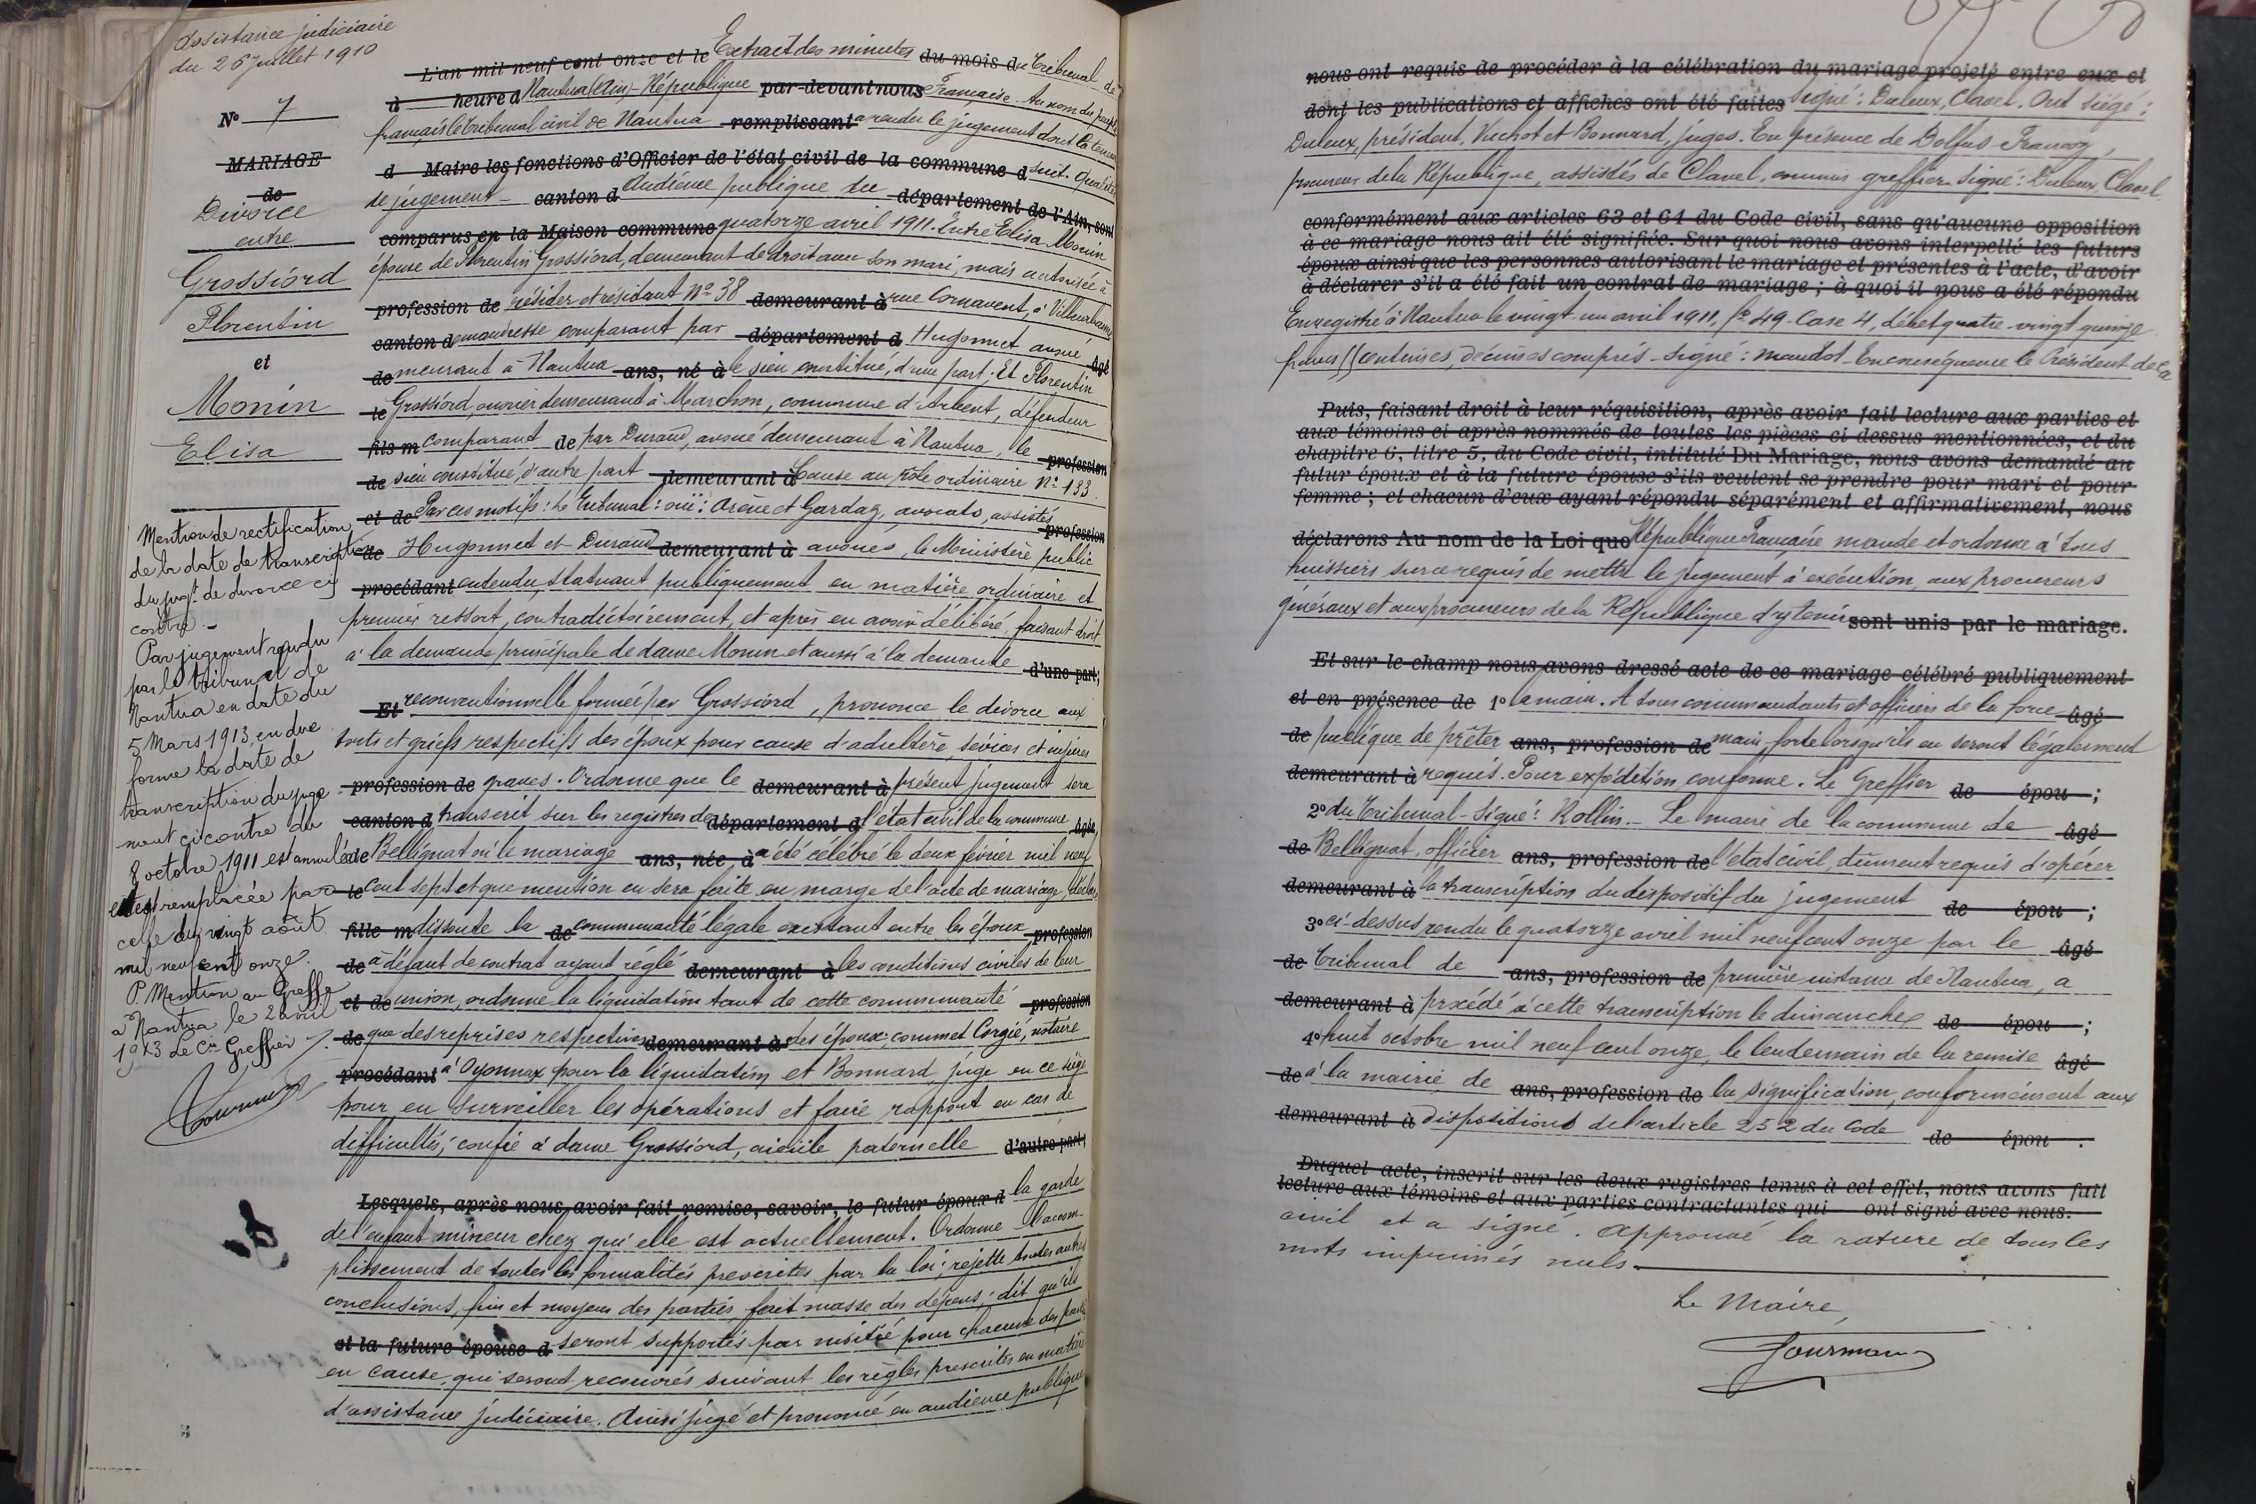 Assistance judiciaire
du 26 juillet 1910
N° 7
MARIAGE
de
Divorce
entre
Grossiord
Florentin
et
Monin
Elisa
Mention de rectification
de la date de transcription
du jugt de divorce ci
contre. -
Par jugement rendu
par le tribunal de
Nantua en date du
5 Mars 1913, en due
forme la date de
transcription du juge
ment ci contre du
8 octobre 1911 est annulée
et est remplacée par
celle du vingt août
mil neuf cent onze.
P. Mention au Greffe
à Nantua le 2 avril
1913 Le Cis Greffier
L'an mil neuf cent onze et le Extrait des minutes du mois d Tribunal de
à heure d Nantua (Ain) - République par-devant nous Française. Au nom du peuple
français le tribunal civil de Nantua remplissant a rendu le jugement dont la teneur
d Maire les fonctions d'Officier de l'état civil de la commune d suit. Qualités
de jugement - canton d Audience publique du département de l'Ain, sont
comparus en la Maison commune quatorze avril 1911. Entre Elisa Monin
épouse de Florentin Grossiord, demeurant de droit avec son mari, mais autorisée à
profession de résider et résidant N° 38 demeurant à rue Cornavent, à Villeurbanne
canton demanderesse comparant par département d Hugonnet avoué âgé
de meurant à Nantua ans, né à le sien constitué, d'une part; Et Florentin
le Grossiord, ouvrier demeurant à Marchon, commune d'Arbent, défendeur
fils m comparant de par Durand, avoué demeurant à Nantua, le profession
de sien constitué d'autre part demeurant à Cause au rôle ordinaire N° 133.
et de Par ces motifs: Le Tribunal: ouï: Arène et Gardaz, avocats, assistés profession
de Hugonnet et Durand demeurant à avoués, le Ministère public
procédant entendu, statuant publiquement en matière ordinaire et
premier ressort, contradictoirement, et après en avoir délibéré, faisant droit
à la demande principale de dame Monin et aussi à la demande d'une part;
Et reconventionnelle formée par Grossiord, prononce le divorce aux
torts et griefs respectifs des époux pour cause d'adultère, sévices et injures
profession de graves. Ordonne que le demeurant à présent jugement sera
canton d transcrit sur les registres de département d l'état civil de la commune âgée
de Bellignat où le mariage ans, née à a été célébré le deux février mil neuf
le cent sept et que mention en sera faite en marge de l'acte de mariage, déclare
fille m dissoute la de communauté légale existant entre les époux profession
de à défaut de contrat ayant réglé demeurant à les conditions civiles de leur
et de union, ordonne la liquidation tant de cette communauté profession
de que des reprises respectives demeurant à des époux; commet Corgié, notaire
procédant à Oyonnax pour la liquidation et Bonnard, juge en ce siège
pour en surveiller les opérations et faire rapport en cas de
difficultés; confie à dame Grossiord, aïeule paternelle d'autre part;
Lesquels, après nous avoir fait remise, savoir, le futur époux d la garde
de l'enfant mineur chez qui elle est actuellement. Ordonne l'accom-
plissement de toutes les formalités prescrites par la loi; rejette toutes autres
conclusions, fins et moyens des parties fait masse des dépens; dit qu'ils
et la future épouse d seront supportés par moitié pour chacune des parties
en cause, qui seront recouvrés suivant les règles prescrites en matière
d'assistance judiciaire. Ainsi jugé et prononcé en audience publique
nous ont requis de procéder à la célébration du mariage projeté entre eux et
dont les publications et affiches ont été faites Signé: Duleux, Clavel. Ont siégé:
Duleux, président, Vuchot et Bonnard, juges. En présence de Dolfus-Francoz,
procureur de la République, assistés de Clavel, commis greffier. Signé: Duleux Clavel
conformément aux articles 63 et 64 du Code civil, sans qu'aucune opposition
à ce mariage nous ait été signifiée. Sur quoi nous avons interpellé les futurs
époux ainsi que les personnes autorisant le mariage et présentes à l'acte, d'avoir
à déclarer s'il a été fait un contrat de mariage; à quoi il nous a été répondu
Enregistré à Nantua le vingt-un avril 1911, f° 49 - Case 4, débet quatre-vingt quinze
francs centimes, décimes compris - signé: Mandot - En conséquence le Président de la
Puis, faisant droit à leur réquisition, après avoir fait lecture aux parties et
aux témoins ci après nommés de toutes les pièces ci dessus mentionnées, et du
chapitre 6, titre 5, du Code civil, intitulé Du Mariage, nous avons demandé au
futur époux et à la future épouse s'ils veulent se prendre pour mari et pour
femme; et chacun d'eux ayant répondu séparément et affirmativement, nous
déclarons Au nom de la Loi que République Française mande et ordonne à tous
huissiers sur ce requis de mettre le jugement à exécution, aux procureurs
généraux et aux procureurs de la République d'y tenir sont unis par le mariage.
Et sur le champ nous avons dressé acte de ce mariage célébré publiquement
et en présence de 1° la main. A tous commandants et officiers de la force âgé
de publique de prêter ans, profession de main forte lorsqu'ils en seront légalement
demeurant à requis. Pour expédition conforme. Le Greffier de épou ;
2° du Tribunal - Signé: Rollin. - Le maire de la commune de âgé
de Bellignat, officier ans, profession de l'état civil, dûment requis d'opérer
demeurant à la transcription du dispositif du jugement de épou ;
3° ci-dessus rendu le quatorze avril mil neuf cent onze par le âgé
de Tribunal de ans, profession de première instance de Nantua, a
demeurant à procédé à cette transcription le dimanche de épou ;
4° huit octobre mil neuf cent onze, le lendemain de la remise âgé
de à la mairie de ans, profession de la signification, conformément aux
demeurant à dispositions de l'article 252 du Code de épou .
Duquel acte, inscrit sur les deux registres tenus à cet effet, nous avons fait
lecture aux témoins et aux parties contractantes qui ont signé avec nous.
civil et a signé. Approuvé la rature de tous les
mots imprimés nuls
Le Maire,